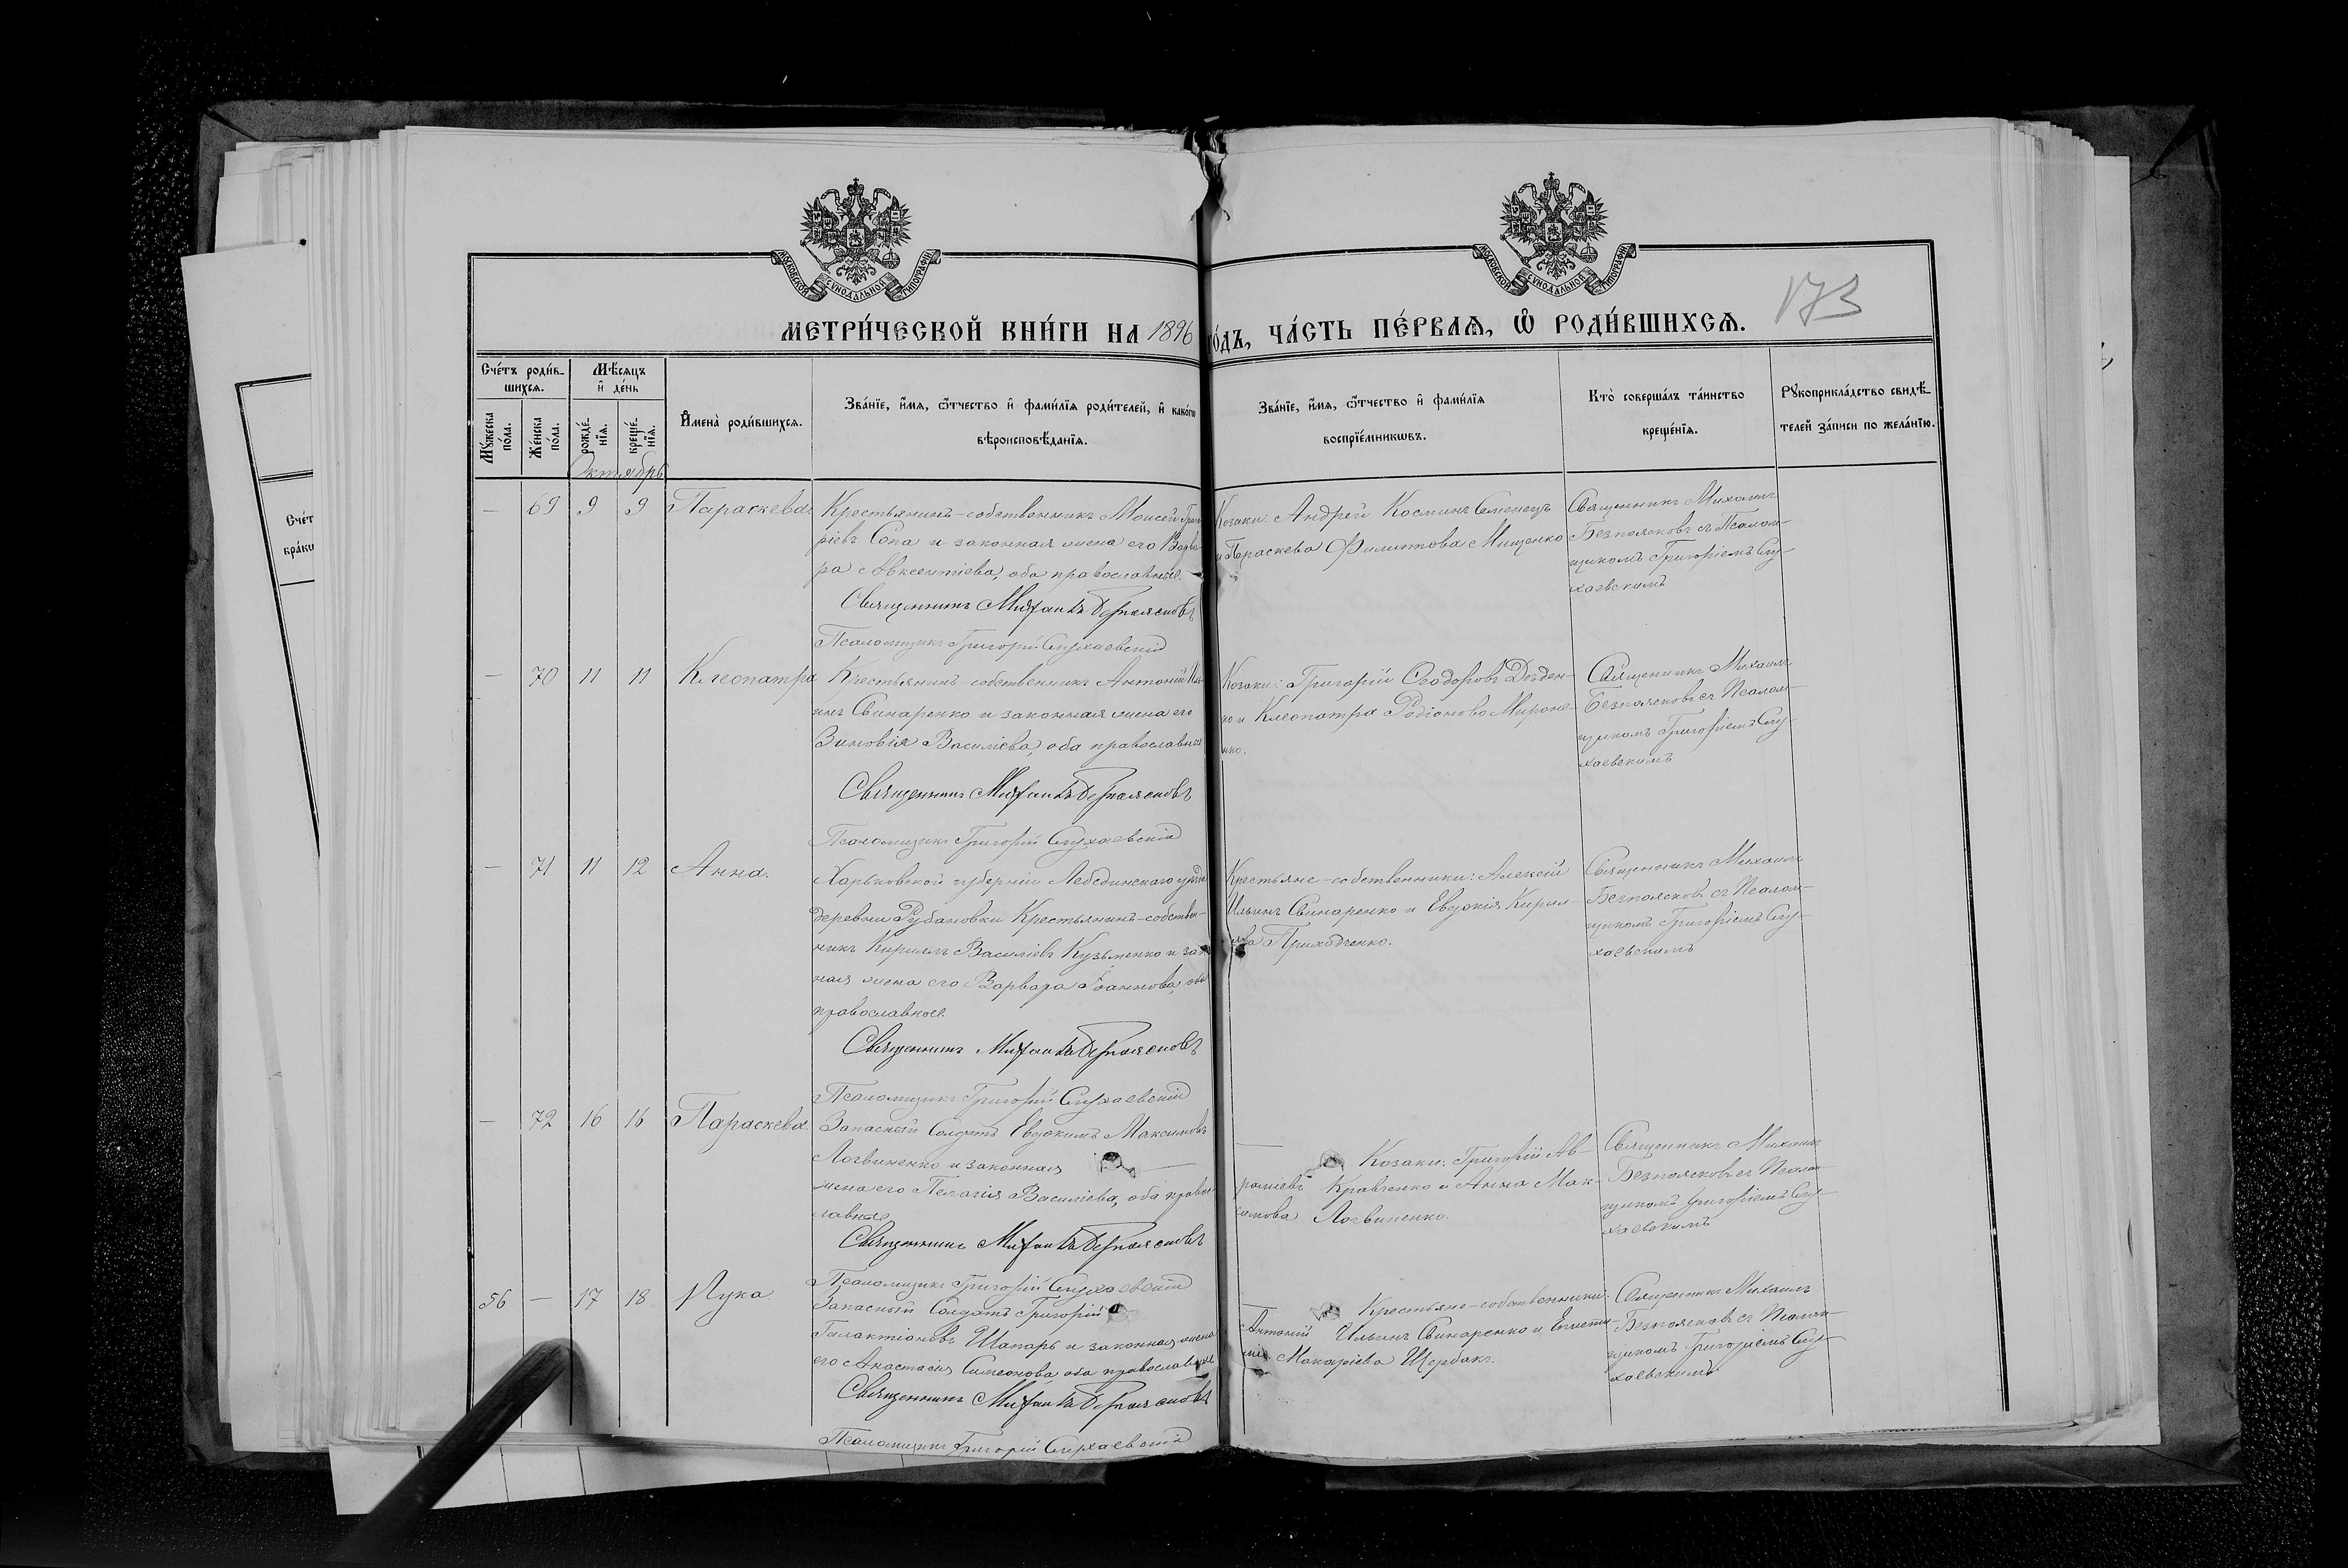 МОСКОВСКОЙ СУНОДАЛЬНОЙ ТИПОГРАФІИ
МОСКОВСКОЙ СУНОДАЛЬНОЙ ТИПОГРАФІИ
173
МЕТРИ́ЧЕСКОЙ КНИ́ГИ НА 1896 ГО́ДЪ, ЧА́СТЬ ПЕ́РВАѦ, Ѡ҆ РОДИ́ВШИХСѦ.
Сче́тъ роди́в-
шихсѧ.
Мѣ́сѧцъ
и҆ де́нь
Мꙋ́жеска
по́ла.
Же́нска
по́ла.
рожде́-
нїѧ.
креще́-
нїѧ.
И҆мена̀ роди́вшихсѧ.
Зва́нїе, и҆́мѧ, ѻ҆́тчество и҆ фами́лїѧ роди́телей, и҆ како́гѡ
вѣроисповѣ́данїѧ.
Зва́нїе, и҆́мѧ, ѻ҆́тчество и҆ фами́лїѧ
воспрїе́мникѡвъ.
Кто̀ соверша́лъ та́инство
креще́нїѧ.
Рꙋкоприкла́дство свидѣ́-
телей за́писи по жела́нїю.
Октябрь
— 69 9 9 Параскева
Крестьянинъ-собственникъ Моисей Григо-
ріевъ Сопа и законная жена его Варва-
ра Авксентіева, оба православные.
Священникъ Михаилъ Безпаясковъ
Псаломщикъ Григорій Слухаевскій
Козаки: Андрей Косминъ Семенецъ
и Параскева Филиппова Мищенко
Священникъ Михаилъ
Безпоясковъ съ Псалом-
щикомъ Григоріемъ Слу-
хаевскимъ
— 70 11 11 Клеопатра
Крестьянинъ-собственникъ Антоній Иль-
инъ Свинаренко и законная жена его
Зиновія Василіева, оба православные
Священникъ Михаилъ Безпаясковъ
Псаломщикъ Григорій Слухаевскій
Козаки: Григорій Ѳеодоровъ Дзден-
ко и Клеопатра Родіонова Мироне-
нко.
Священникъ Михаилъ
Безпоясковъ съ Псалом-
щикомъ Григоріемъ Слу-
хаевскимъ
— 71 11 12 Анна.
Харьковской губерніи Лебединскаго уѣзда
деревни Рубановки Крестьянинъ-собствен-
никъ Кириллъ Василіевъ Кузьменко и закон
ная жена его Варвара Іоаннова, оба
православные.
Священникъ Михаилъ Безпаясковъ
Псаломщикъ Григорій Слухаевскій
Крестьяне-собственники: Алексій
Ильинъ Свинаренко и Евдокія Кирил-
лова Приходченко.
Священникъ Михаилъ
Безпоясковъ съ Псалом-
щикомъ Григоріемъ Слу-
хаевскимъ
— 72 16 16 Параскева
Запасный Солдатъ Евдокимъ Максимовъ
Логвиненко и законная —
жена его Пелагія Василіева, оба право-
славные.
Священникъ Михаилъ Безпаясковъ
Псаломщикъ Григорій Слухаевскій
— Козаки: Григорій Ав-
рамиевъ Кравченко и Анна Мак-
симова Логвиненко.
Священникъ Михаилъ
Безпоясковъ съ Псалом-
щикомъ Григоріемъ Слу-
хаевскимъ
56 — 17 18 Лука
Запасный Солдатъ Григорій
Галактіоновъ Шапарь и законная жена
его Анастасія Симеонова, оба православные
Священникъ Михаилъ Безпаясковъ
Псаломщикъ Григорій Слухаевскій
Крестьяне-собственники:
Антоній Ильинъ Свинаренко и Евгені-
Макаріева Щербакъ.
Священникъ Михаилъ
Безпоясковъ съ Псалом-
щикомъ Григоріемъ Слу-
хаевскимъ
Сче́т
бра́кѡ